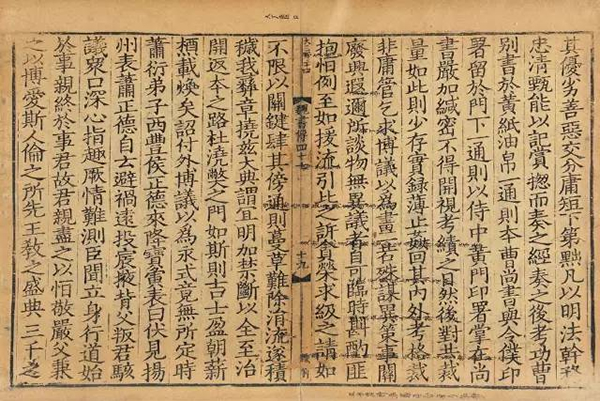 其優劣善惡交分庸短下第黜凡以明法幹務
忠清甄能以記賞揔而奏之經奏之後考功曹
別書於黃紙油帛一通則本曹尚書與令僕印
署留於門下一通則以侍中黃門印署掌在尚
書嚴加緘密不得開視考績之日然後對共裁
量如此則少存實錄薄止姦回其內外考格裁
非庸管乞求博議以為畫一若殊謀異策事關
廢興遐邇所談物無異議者自可臨時斟酌匪
抱恒例至如援流引比之訴貪榮求級之請如
魏書傳四十七
十九
不限以關鍵肆其傍通則蔓草難除涓流遂積
穢我彝章撓茲大典謂宜明加禁斷以全至治
開返本之路杜澆弊之門如斯則吉士盈朝薪
槱載煥矣詔付外博議以為永式竟無所定時
蕭衍弟子西豐侯正德來降寶夤表曰伏見揚
州表蕭正德自云避禍遠投宸掖背父叛君駭
議眾口深心指趣厭情難測臣聞立身行道始
於事親終於事君故君親盡之以恒敬嚴父兼
之以博愛斯人倫之所先王教之盛典三千之